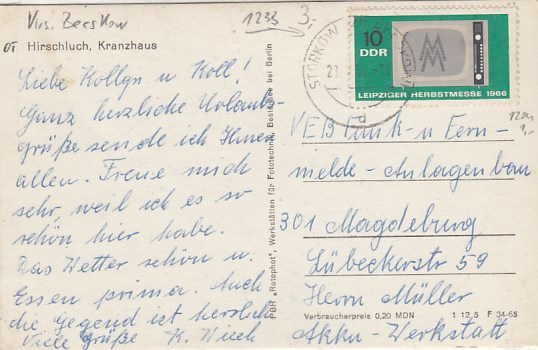 Krs. Beeskow
1233
3,-
OT Hirschluch, Kranzhaus
Liebe Kollgn u Koll!
Ganz herzliche Urlaubs-
grüße sende ich Ihnen
allen. Freue mich
sehr, weil ich es so
schön hier habe.
Das Wetter schön u.
Essen prima. Auch
die Gegend ist herrlich
Viele Grüße K. Wiech
PBH „Rotophot", Werkstätten für Fototechnik, Bestensee bei Berlin
STORKOW
10
DDR
MM
LEIPZIGER HERBSTMESSE 1966
1204
1,-
VEB Funk- u Fern-
melde-Anlagenbau
301 Magdeburg
Lübeckerstr 59
Herrn Müller
Verbraucherpreis 0,20 MDN 1 12,5 F 34-65
Akku-Werkstatt